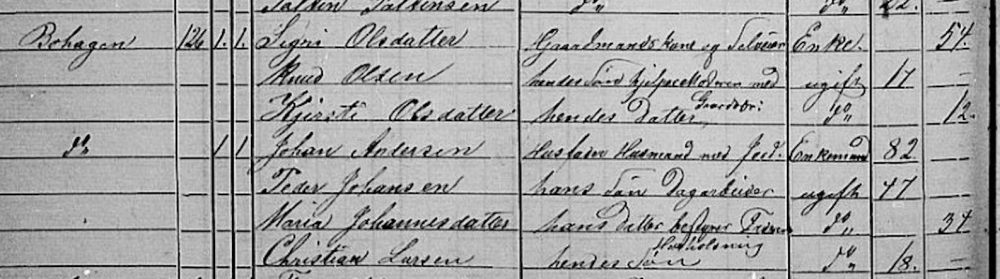 Falkin Falkinsen d°„ 22.
Bohagen 126 1. 1. Sigri Olsdatter Gaardmands kone og Selveier Enke. 54.
Knud Olsen hendes Søn hjelper Moderen med ugift 17
Gaardsbr:
Kjersti Olsdatter hendes Datter d°„ 12.
d°„ 1 1 Johan Andersen Husfader Husmand med Jord. Enkemand 82
Peder Johansen hans Søn Dagarbeider ugift 47
Maria Johannesdatter hans Datter bestyrer d°„ 34
Huusholdning
Christian Larsen hendes Søn d°„ 18.